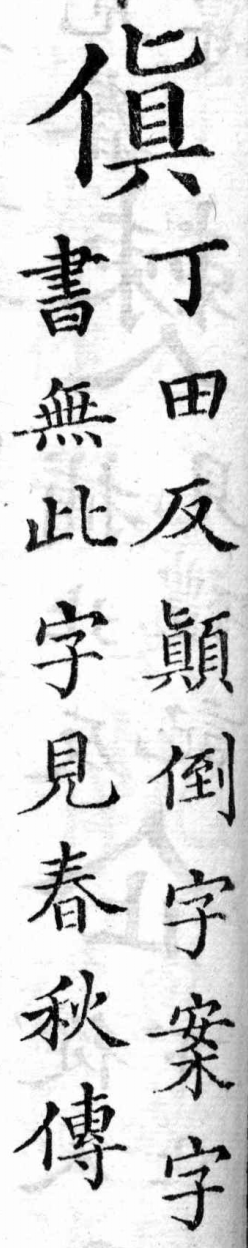 傎
丁田反顚倒字案字
書無此字見春秋傳